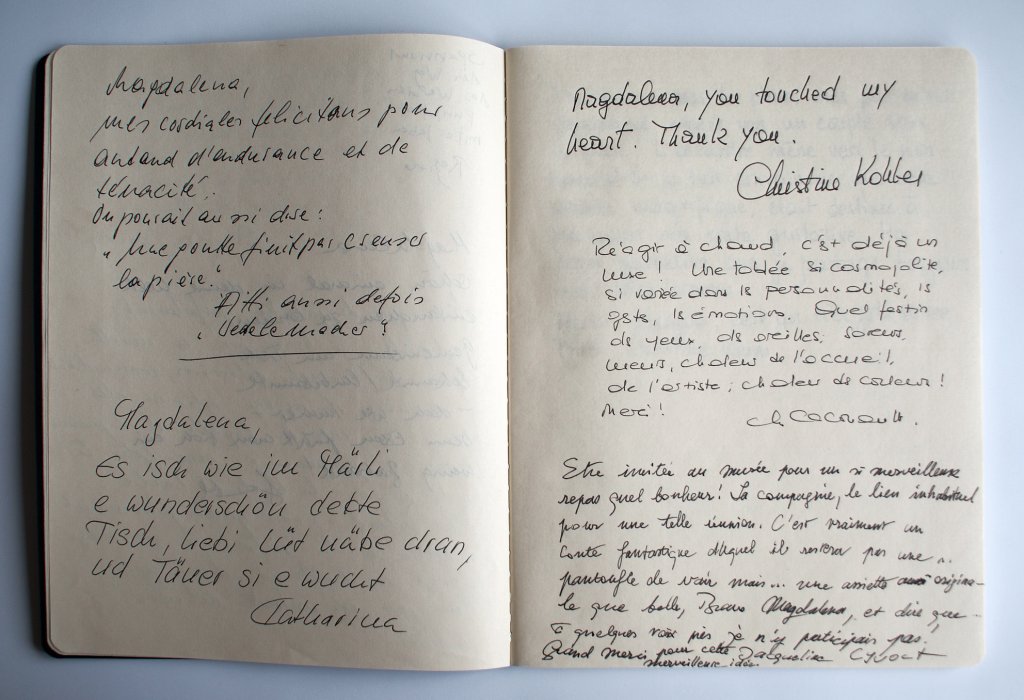 Magdalena,
mes cordiales felicitons pour
autand d'endurance et de
ténacité.
On pourait aussi dire :
„Une goutte finit par creuser
la pière."
Atti aussi defois
Magdalena,
Es isch wie im Märli
e wunderschön dekte
Tisch, liebi Lüt näbe dran,
ud Täller si e wucht
Catharina
Magdalena, you touched my
heart. Thank you.
Christine
Réagir à chaud, c'est déjà un
luxe ! Une tablée si cosmopolite,
si variée dans ls personnalités, ls
gsts, ls émotions. Quel festin
ds yeux, ds oreilles, saveurs,
lueurs, chaleur de l'accueil,
de l'artiste ; chaleur de couleurs !
Merci !
Etre invitée au musée pour un si merveilleux
repas quel bonheur ! La compagnie, le lieu inhabituel
pour une telle réunion. C'est vraiment un
conte fantastique duquel il restera pas une ..
pantoufle de vair mais... une assiette aussi origina-
le que belle, Bravo Magdalena, et dire que
à quelques voix près je n'y participais pas !
Grand merci pour cette Jacqueline
merveilleuse idée